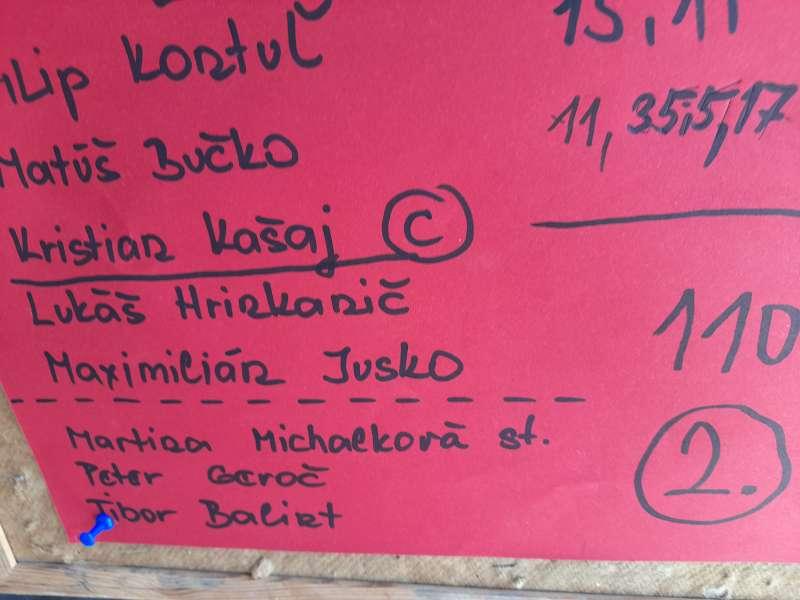 Kortuľ 15,11
Matúš Bučko 11, 35,5, 17
Kristian Kašaj C
Lukáš Hrinkanič
110
Maximilián Jusko
Martina Michalková st.
Peter Geroč
2.
Tibor Balint